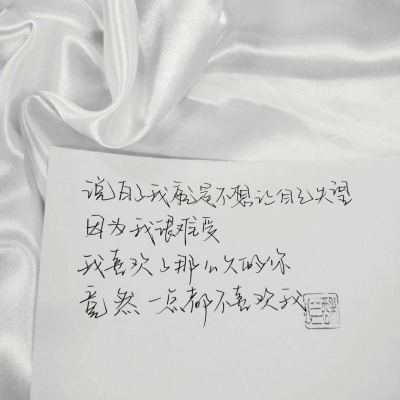 说白了我就是不想让自己失望
因为我很难受
我喜欢上那么久的你
竟然一点都不喜欢我